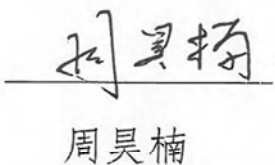 周昊楠
周昊楠